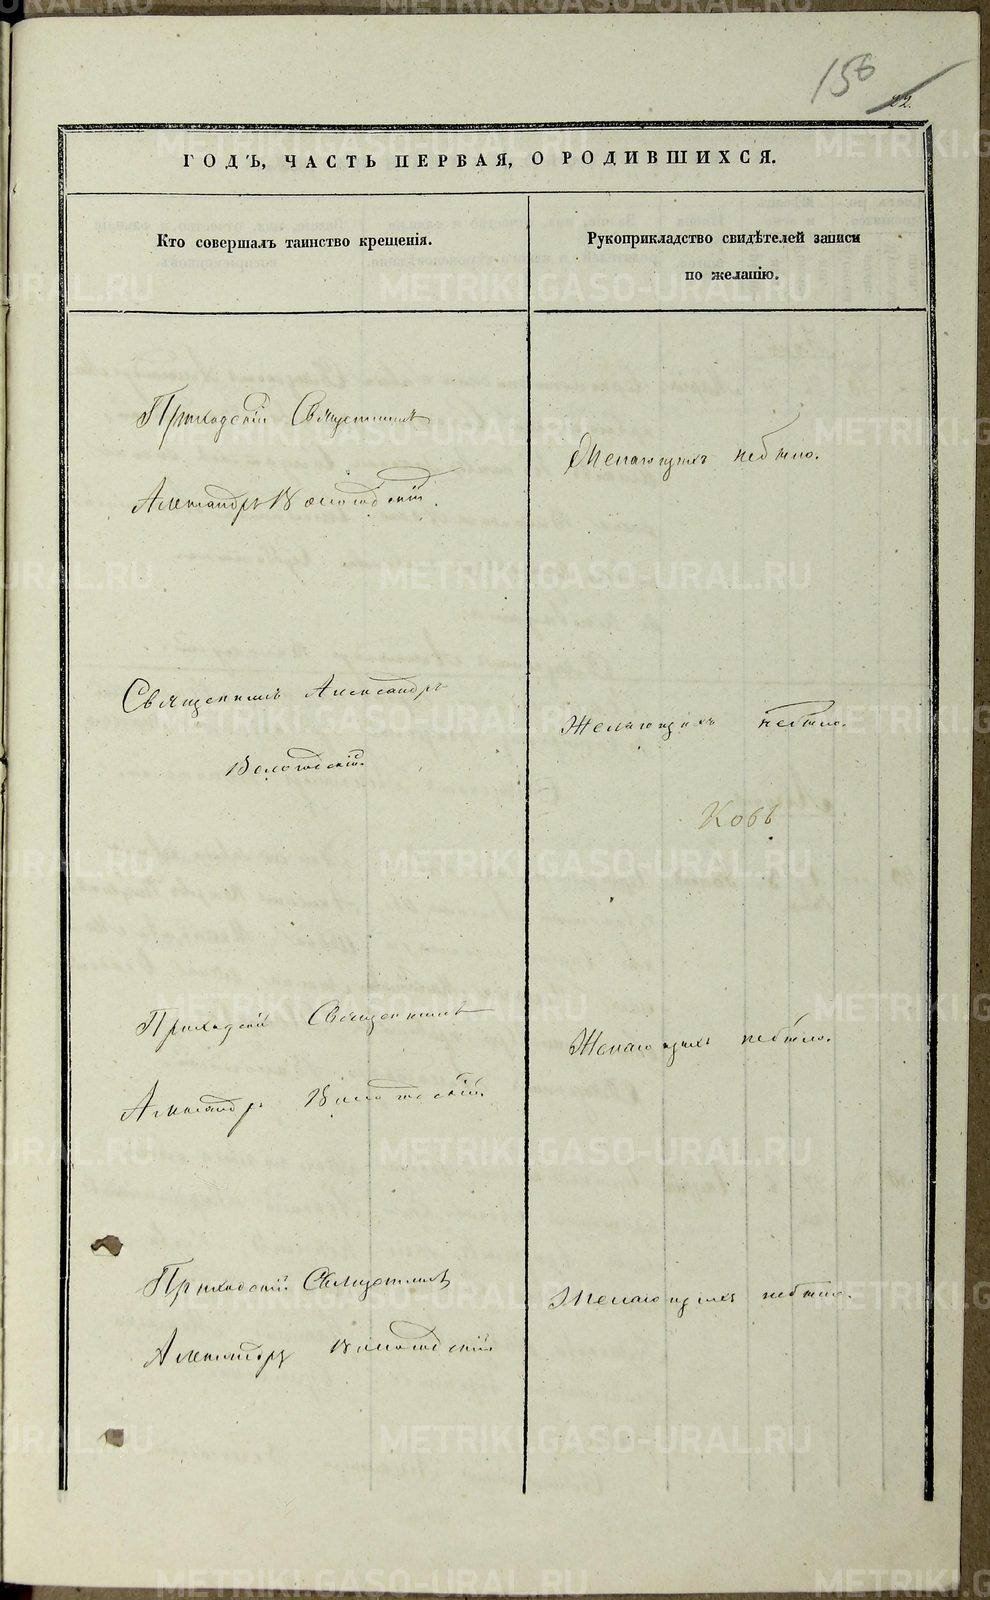 156
22.
ГОДЪ, ЧАСТЬ ПЕРВАЯ, О РОДИВШИХСЯ.
Кто совершалъ таинство крещенія.
Рукоприкладство свидѣтелей записи
по желанію.
Приходскій Священникъ
Александръ Вологодскій.
Желающихъ небыло.
Священникъ Александръ
Вологодскій.
Желающихъ небыло.
Приходскій Священникъ
Александръ Вологодскій.
Желающихъ небыло.
Приходскій Священникъ
Александръ Вологодскій
Желающихъ небыло.
METRIKI.GASO-URAL.RU